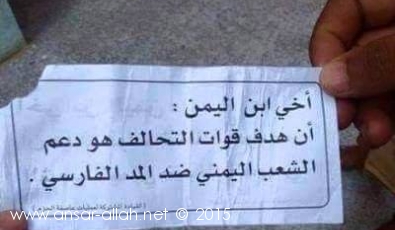 أخي ابن اليمن :
أن هدف قوات التحالف هو دعم
الشعب اليمني ضد المد الفارسي .
( القيادة المشتركة لعمليات عاصفة الحزم )
www.ansar-allah.net © 2015